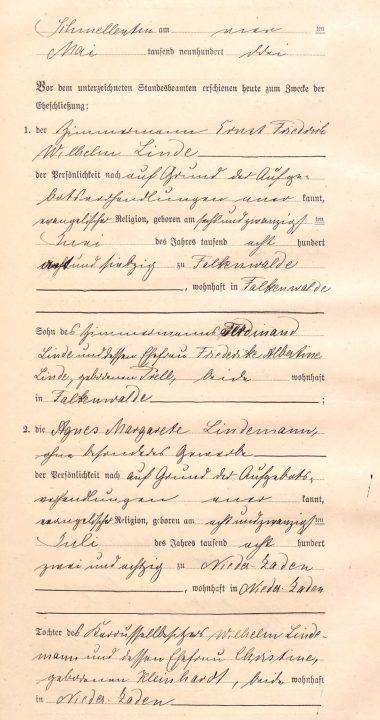 Schmellentin am vier ten
Mai tausend neunhundert drei
Vor dem unterzeichneten Standesbeamten erschienen heute zum Zwecke der
Eheschließung:
1. der Zimmermann Ernst Friedrich
Wilhelm Linde
der Persönlichkeit nach auf Grund der Aufge-
botsverhandlungen aner kannt,
evangelischer Religion, geboren am sechsundzwanzigs ten
Juni des Jahres tausend acht hundert
achtundsiebzig zu Falkenwalde
, wohnhaft in Falkenwalde
Sohn des Zimmermanns Ferdinand
Linde und dessen Ehefrau Friederike Albertine
Linde, geborenen Prell, beide wohnhaft
in Falkenwalde ;
2. die Agnes Margarete Lindemann,
ohne besonderes Gewerbe
der Persönlichkeit nach auf Grund der Aufgebots-
verhandlungen aner kannt,
evangelischer Religion, geboren am achtundzwanzigs ten
Juli des Jahres tausend acht hundert
zwei und achtzig zu Nieder-Zaden
, wohnhaft in Nieder-Zaden
Tochter des Karussellbesitzers Wilhelm Linde-
mann und dessen Ehefrau Christine,
geborenen Kleinhardt, beide wohnhaft
in Nieder-Zaden